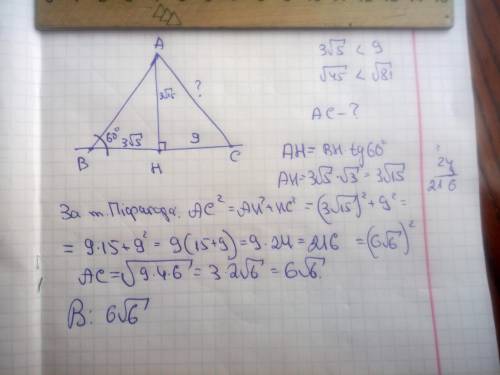 A
3√15
?
60°
3√5
9
B
H
C
3√5 < 9
√45 < √81
AC - ?
AH = BH · tg60°
AH = 3√5 · √3 = 3√15
24
9
216
За т. Піфагора, AC² = AH² + HC² = (3√15)² + 9² =
= 9·15 + 9² = 9(15+9) = 9·24 = 216 = (6√6)²
AC = √9·4·6 = 3·2√6 = 6√6.
В: 6√6